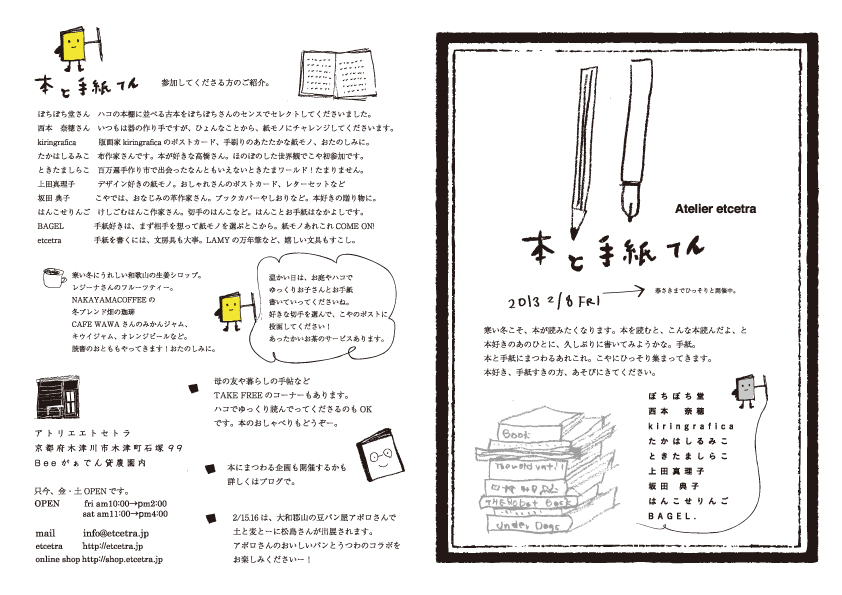 本と手紙てん
参加してくださる方のご紹介。
ぼちぼち堂さん　ハコの本棚に並べる古本をぼちぼちさんのセンスでセレクトしてくださいました。
西本　奈穂さん　いつもは器の作り手ですが、ひょんなことから、紙モノにチャレンジしてくださいます。
kiringrafica　版画家 kiringrafica のポストカード、手刷りのあたたかな紙モノ、おたのしみに。
たかはしるみこ　布作家さんです。本が好きな高橋さん。ほのぼのした世界観でこや初参加です。
ときたましらこ　百万遍手作り市で出会ったなんともいえないときたまワールド！たまりません。
上田真理子　デザイン好きの紙モノ。おしゃれさんのポストカード、レターセットなど
坂田 典子　こやでは、おなじみの革作家さん。ブックカバーやしおりなど。本好きの贈り物に。
はんこせりんご　けしごむはんこ作家さん。切手のはんこなど。はんことお手紙はなかよしです。
BAGEL　手紙好きは、まず相手を想って紙モノを選ぶとこから。紙モノあれこれ COME ON!
etcetra　手紙を書くには、文房具も大事。LAMY の万年筆など、嬉しい文具もすこし。
寒い冬にうれしい和歌山の生姜シロップ。
レジーナさんのフルーツティー。
NAKAYAMACOFFEE の
冬ブレンド畑の珈琲
CAFE WAWA さんのみかんジャム、
キウイジャム、オレンジピールなど。
読書のおともやってきます！おたのしみに。
温かい日は、お庭やハコで
ゆっくりお子さんとお手紙
書いていってくださいね。
好きな切手を選んで、こやのポストに
投函してください！
あったかいお茶のサービスあります。
母の友や暮らしの手帖など
TAKE FREE のコーナーもあります。
ハコでゆっくり読んでってくださるのも OK
です。本のおしゃべりもどうぞー。
アトリエエトセトラ
京都府木津川市木津町石塚９９
Ｂｅｅがぁでん貸農園内
本にまつわる企画も開催するかも
詳しくはブログで。
只今、金・土 OPEN です。
OPEN　fri am10:00→pm2:00
sat am11:00→pm4:00
2/15.16 は、大和郡山の豆パン屋アポロさんで
土と麦と一に松島さんが出展されます。
アポロさんのおいしいパンとうつわのコラボを
お楽しみくださいー！
mail　info@etcetra.jp
etcetra　http://etcetra.jp
online shop http://shop.etcetra.jp
Atelier etcetra
本と手紙てん
2013 2/8 FRI
春さきまでひっそりと開催中。
寒い冬こそ、本が読みたくなります。本を読むと、こんな本読んだよ、と
本好きのあのひとに、久しぶりに書いてみようかな。手紙。
本と手紙にまつわるあれこれ。こやにひっそり集まってきます。
本好き、手紙すきの方、あそびにきてください。
ぼちぼち堂
西本　奈穂
kiringrafica
たかはしるみこ
ときたましらこ
上田真理子
坂田　典子
はんこせりんご
BAGEL.
Book
Under Dogs